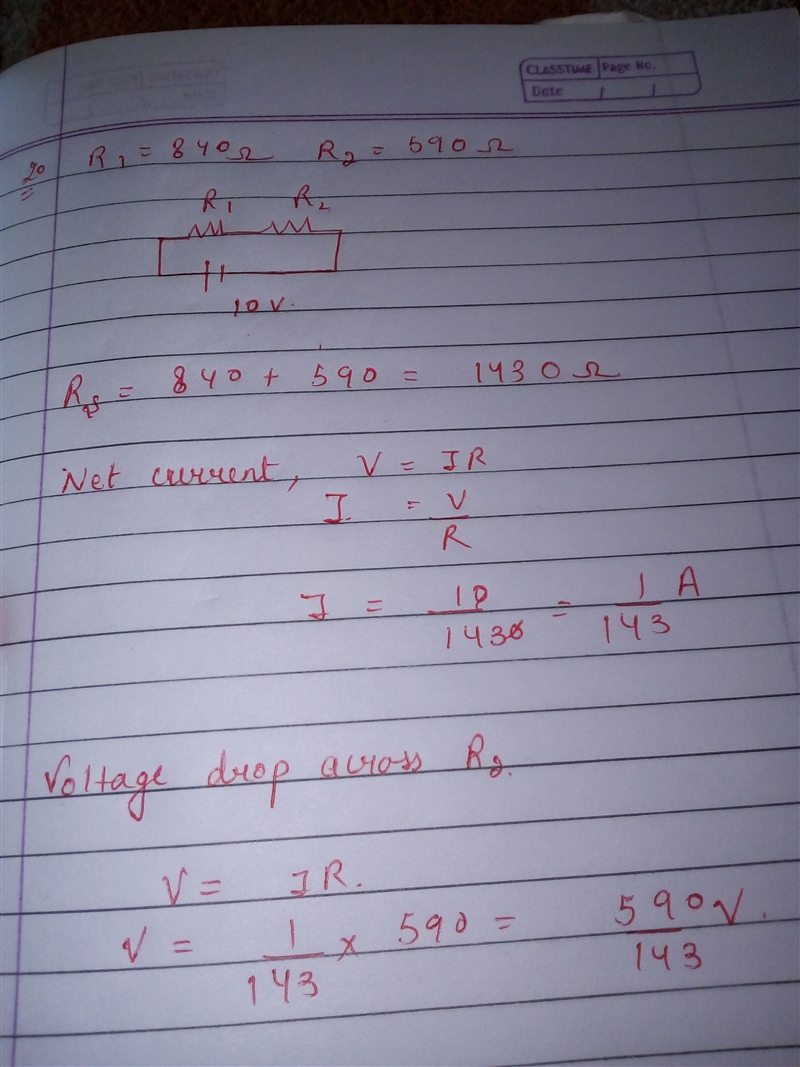 CLASSTIME Page No.
Date / /
20 R1 = 840Ω R2 = 590Ω
R1 R2
10 V.
Rs = 840 + 590 = 1430 Ω
Net current, V = IR
I = V/R
I = 10/1430 = 1/143 A
Voltage drop across R2.
V = IR.
V = 1/143 × 590 = 590/143 V.